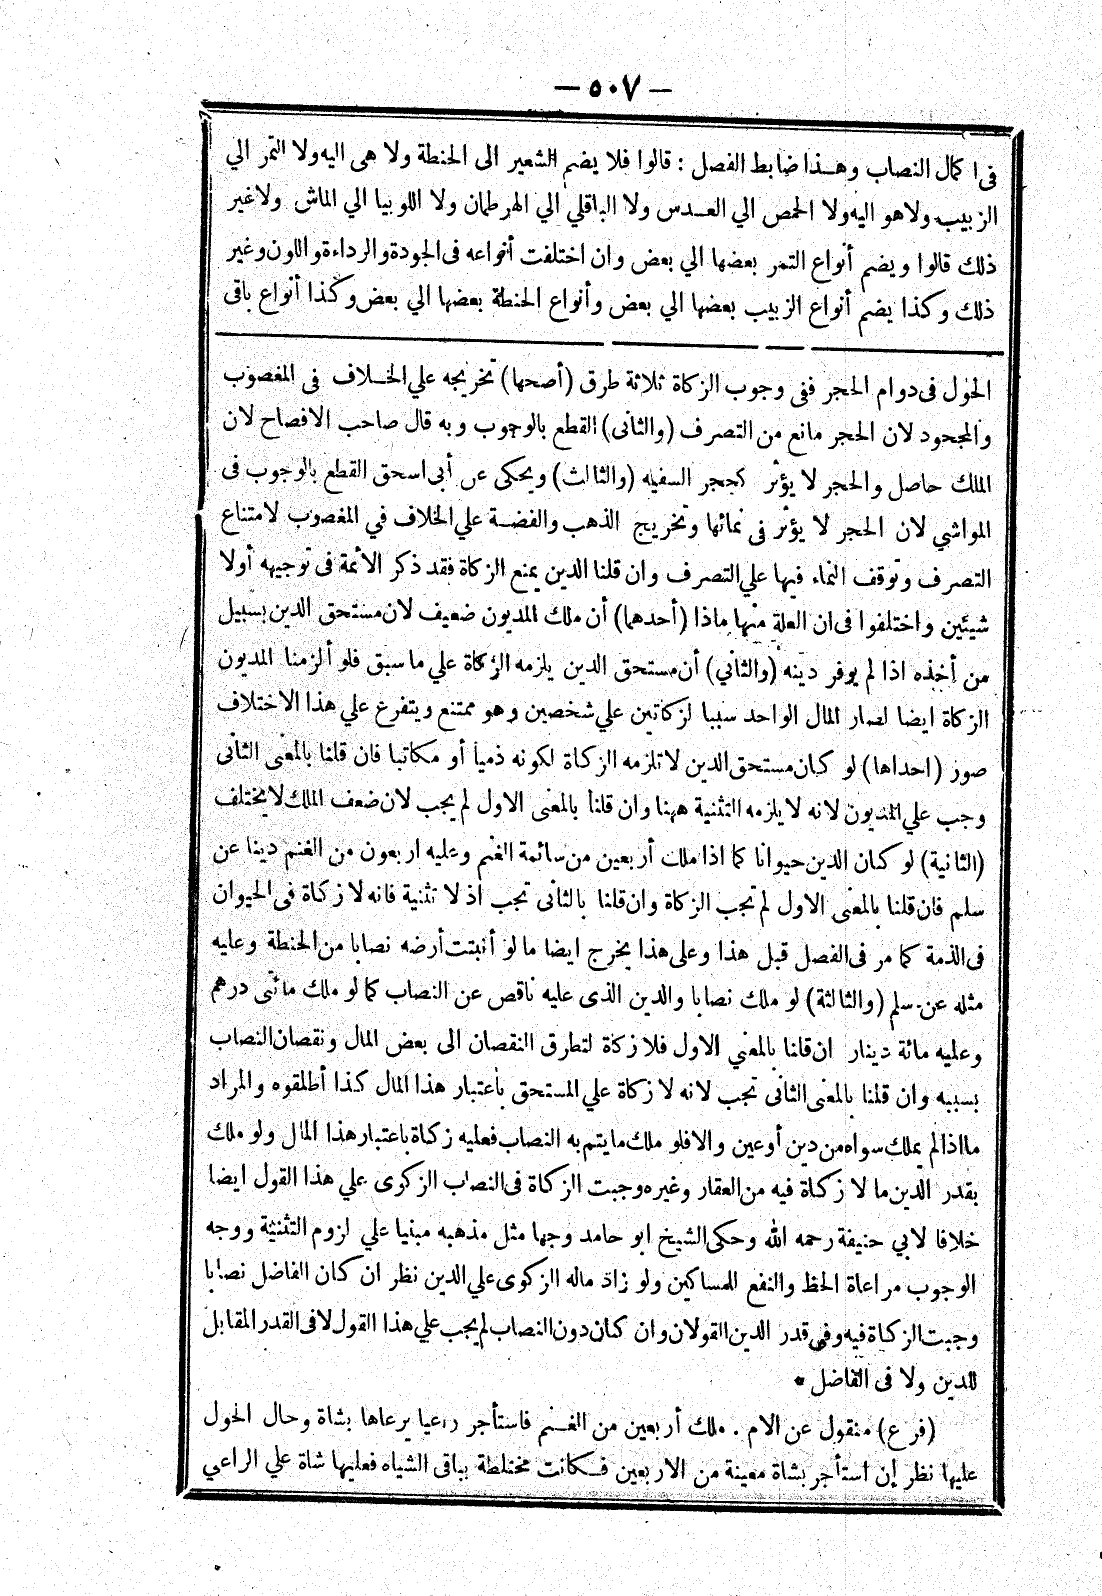 — ٥٠٧ —
فى اكمال النصاب وهذا ضابط الفصل : قالوا فلا يضم الشعير الى الحنطة ولا هى اليه ولا التمر الي
الزبيب ولا هو اليه ولا الحمص الي العدس ولا الباقلي الي الهرطمان ولا اللوبيا الي الماش ولا غير
ذلك قالوا ويضم أنواع التمر بعضها الي بعض وان اختلفت أنواعه فى الجودة والرداءة واللون وغير
ذلك وكذا يضم أنواع الزبيب بعضها الي بعض وأنواع الحنطة بعضها الي بعض وكذا أنواع باقى
الحول فى دوام الحجر ففى وجوب الزكاة ثلاثة طرق (أصحها) تخريجه علي الخلاف فى المغصوب
والمجحود لان الحجر مانع من التصرف (والثانى) القطع بالوجوب وبه قال صاحب الافصاح لان
الملك حاصل والحجر لا يؤثر كحجر السفيه (والثالث) ويحكى عن أبى اسحق القطع بالوجوب فى
المواشي لان الحجر لا يؤثر فى نمائها وتخريج الذهب والفضة علي الخلاف في المغصوب لامتناع
التصرف وتوقف النماء فيها علي التصرف وان قلنا الدين يمنع الزكاة فقد ذكر الأئمة فى توجيهه أولا
شيئين واختلفوا فى ان العلة منها ماذا (أحدهما) أن ملك المديون ضعيف لان مستحق الدين بسبيل
من أخذه اذا لم يوفر دينه (والثاني) أن مستحق الدين يلزمه الزكاة علي ما سبق فلو ألزمنا المديون
الزكاة ايضا لصار المال الواحد سببا لزكاتين علي شخصين وهو ممتنع ويتفرع علي هذا الاختلاف
صور (احداها) لو كان مستحق الدين لا تلزمه الزكاة لكونه ذميا أو مكاتبا فان قلنا بالمعنى الثانى
وجب علي المديون لانه لا يلزمه التثنية ههنا وان قلنا بالمعنى الاول لم يجب لان ضعف الملك لا يختلف
(الثانية) لو كان الدين حيوانا كما اذا ملك أربعين من سائمة الغنم وعليه اربعون من الغنم دينا عن
سلم فان قلنا بالمعنى الاول لم تجب الزكاة وان قلنا بالثانى تجب اذ لا تثنية فانه لا زكاة فى الحيوان
فى الذمة كما مر فى الفصل قبل هذا وعلى هذا يخرج ايضا ما لو أنبتت أرضه نصابا من الحنطة وعليه
مثله عن سلم (والثالثة) لو ملك نصابا والدين الذى عليه ناقص عن النصاب كما لو ملك مائتى درهم
وعليه مائة دينار ان قلنا بالمعني الاول فلا زكاة لتطرق النقصان الى بعض المال ونقصان النصاب
بسببه وان قلنا بالمعنى الثانى تجب لانه لا زكاة علي المستحق باعتبار هذا المال كذا أطلقوه والمراد
ما اذا لم يملك سواه من دين أو عين والا فلو ملك ما يتم به النصاب فعليه زكاة باعتبار هذا المال ولو ملك
بقدر الدين ما لا زكاة فيه من العقار وغيره وجبت الزكاة فى النصاب الزكوى علي هذا القول ايضا
خلافا لابي حنيفة رحمه الله وحكى الشيخ ابو حامد وجها مثل مذهبه مبنيا علي لزوم التثنية ووجه
الوجوب مراعاة الحظ والنفع للمساكين ولو زاد ماله الزكوى علي الدين نظر ان كان الفاضل نصابا
وجبت الزكاة فيه وفى قدر الدين القولان وان كان دون النصاب لم يجب علي هذا القول لا فى القدر المقابل
للدين ولا فى الفاضل *
(فرع) منقول عن الام . ملك أربعين من الغنم فاستأجر راعيا يرعاها بشاة وحال الحول
عليها نظر إن استأجر بشاة معينة من الاربعين فكانت مختلطة بباقى الشياه فعليها شاة علي الراعي